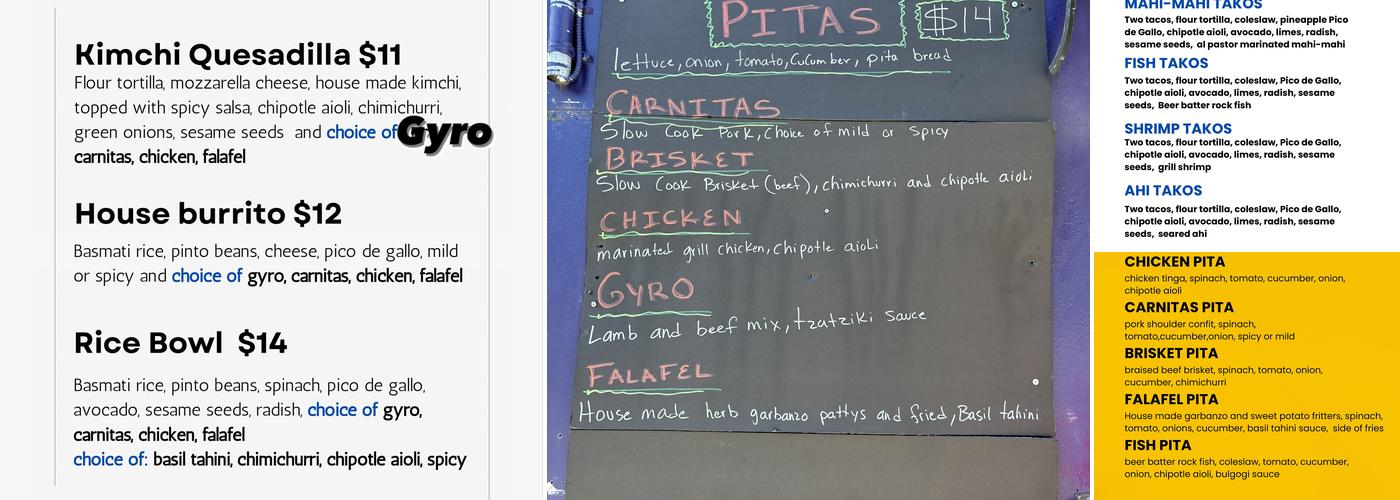 Kimchi Quesadilla $11
Flour tortilla, mozzarella cheese, house made kimchi,
topped with spicy salsa, chipotle aioli, chimichurri,
green onions, sesame seeds and choice of Gyro
carnitas, chicken, falafel
House burrito $12
Basmati rice, pinto beans, cheese, pico de gallo, mild
or spicy and choice of gyro, carnitas, chicken, falafel
Rice Bowl $14
Basmati rice, pinto beans, spinach, pico de gallo,
avocado, sesame seeds, radish, choice of gyro,
carnitas, chicken, falafel
choice of: basil tahini, chimichurri, chipotle aioli, spicy
PITAS $14
lettuce, onion, tomato, cucumber, pita bread
CARNITAS
Slow Cook Pork, Choice of mild or spicy
BRISKET
Slow Cook Brisket (beef), chimichurri and chipotle aioli
CHICKEN
marinated grill chicken, Chipotle aioli
GYRO
Lamb and beef mix, tzatziki sauce
FALAFEL
House made herb garbanzo pattys and fried, Basil tahini
MAHI-MAHI TAKOS
Two tacos, flour tortilla, coleslaw, pineapple Pico
de Gallo, chipotle aioli, avocado, limes, radish,
sesame seeds, al pastor marinated mahi-mahi
FISH TAKOS
Two tacos, flour tortilla, coleslaw, Pico de Gallo,
chipotle aioli, avocado, limes, radish, sesame
seeds, Beer batter rock fish
SHRIMP TAKOS
Two tacos, flour tortilla, coleslaw, Pico de Gallo,
chipotle aioli, avocado, limes, radish, sesame
seeds, grill shrimp
AHI TAKOS
Two tacos, flour tortilla, coleslaw, Pico de Gallo,
chipotle aioli, avocado, limes, radish, sesame
seeds, seared ahi
CHICKEN PITA
chicken tinga, spinach, tomato, cucumber, onion,
chipotle aioli
CARNITAS PITA
pork shoulder confit, spinach,
tomato,cucumber,onion, spicy or mild
BRISKET PITA
braised beef brisket, spinach, tomato, onion,
cucumber, chimichurri
FALAFEL PITA
House made garbanzo and sweet potato fritters, spinach,
tomato, onions, cucumber, basil tahini sauce, side of fries
FISH PITA
beer batter rock fish, coleslaw, tomato, cucumber,
onion, chipotle aioli, bulgogi sauce